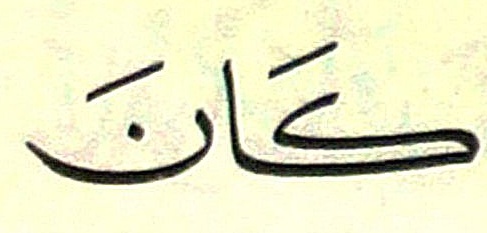 كَانَ